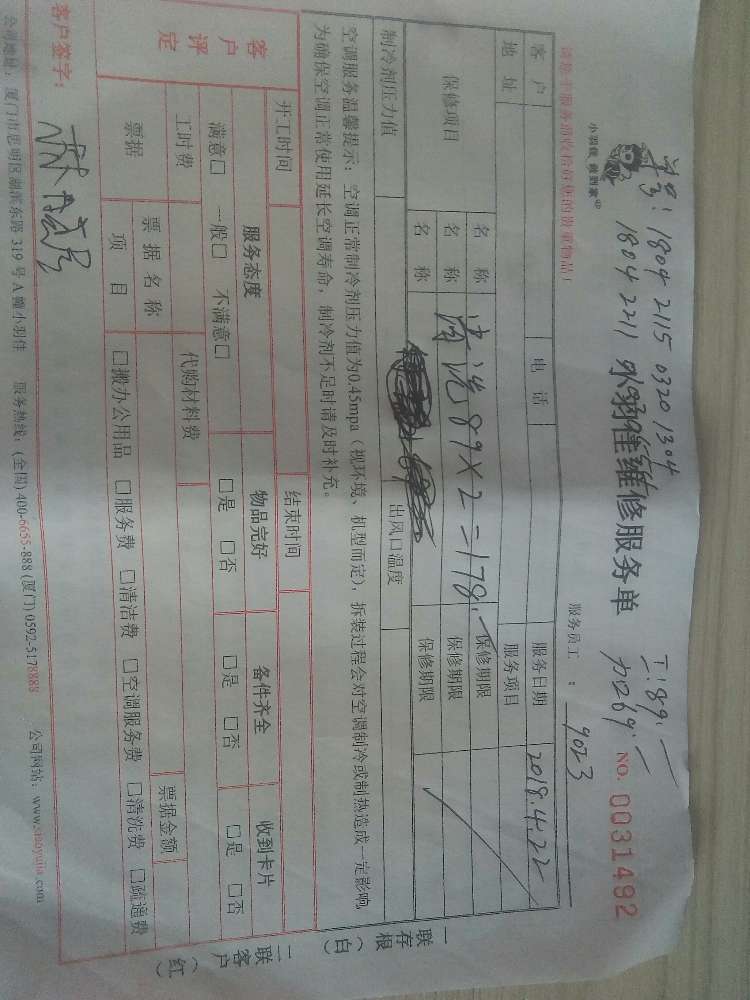 单号：1804 2115 0320 1304
1804 2211
工：89.—
加：69.—
小羽佳 做到家
小羽佳维修服务单
NO. 0031492
服务员工：9053
请您在服务前收拾好您的贵重物品！
客户 电话 服务日期 2018.4.22
地址 服务项目
保修项目 名称 清洗89×2=178.— 保修期限
名称 保修期限
名称 保修期限
制冷剂压力值 出风口温度
空调服务温馨提示：空调正常制冷剂压力值为0.45mpa（视环境、机型而定），拆装过程会对空调制冷或制热造成一定影响，
为确保空调正常使用延长空调寿命，制冷剂不足时请及时补充。
开工时间 结束时间
客户评定 服务态度 物品完好 备件齐全 收到卡片
满意□ 一般□ 不满意□ □是 □否 □是 □否 □是 □否
工时费 代购材料费 票据金额
票据 票据名称
项目 □搬办公用品 □服务费 □清洁费 □空调服务费 □清洗费 □疏通费
客户签字：
公司地址：厦门市思明区湖滨东路319号A幢小羽佳 服务热线：(全国) 400-6655-888 (厦门) 0592-5178888 公司网站：www.xiaoyujia.com
一联存根（白）
二联客户（红）